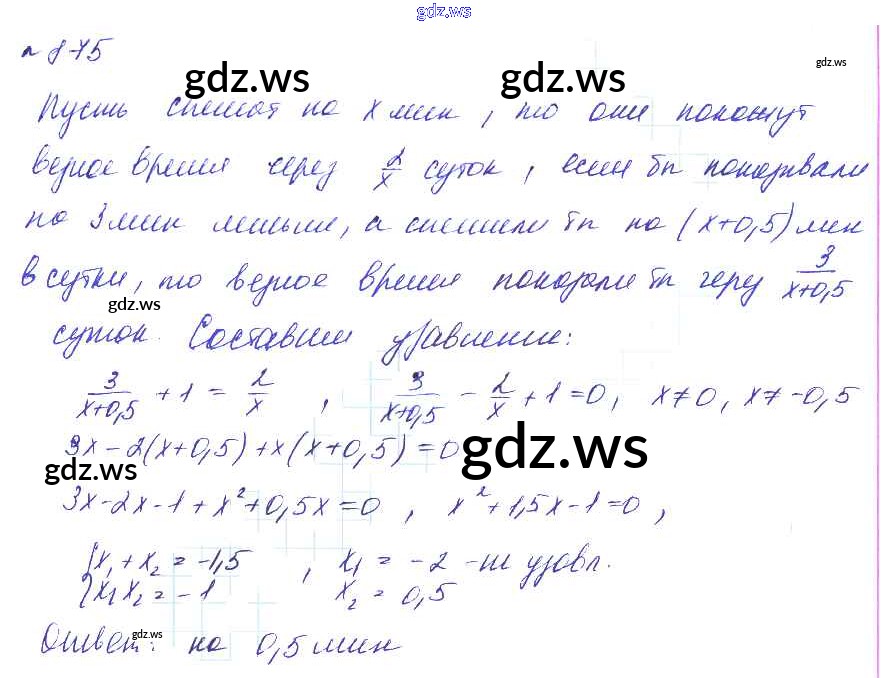 gdz.ws
№ 875
gdz.ws gdz.ws gdz.ws
Пусть спешат на x мин, то они покажут
верное время через 2/x суток, если бы показывали
на 3 мин меньше, а спешили бы на (x+0,5) мин
в сутки, то верное время показали бы через 3/(x+0,5)
gdz.ws
суток. Составим уравнение:
3/(x+0,5) + 1 = 2/x, 3/(x+0,5) - 2/x + 1 = 0, x≠0, x≠-0,5
3x - 2(x+0,5) + x(x+0,5) = 0
gdz.ws gdz.ws
3x - 2x - 1 + x² + 0,5x = 0, x² + 1,5x - 1 = 0,
{x₁ + x₂ = -1,5, x₁ = -2 - не удовл.
{x₁ x₂ = -1 x₂ = 0,5
Ответ: на 0,5 мин
gdz.ws gdz.ws